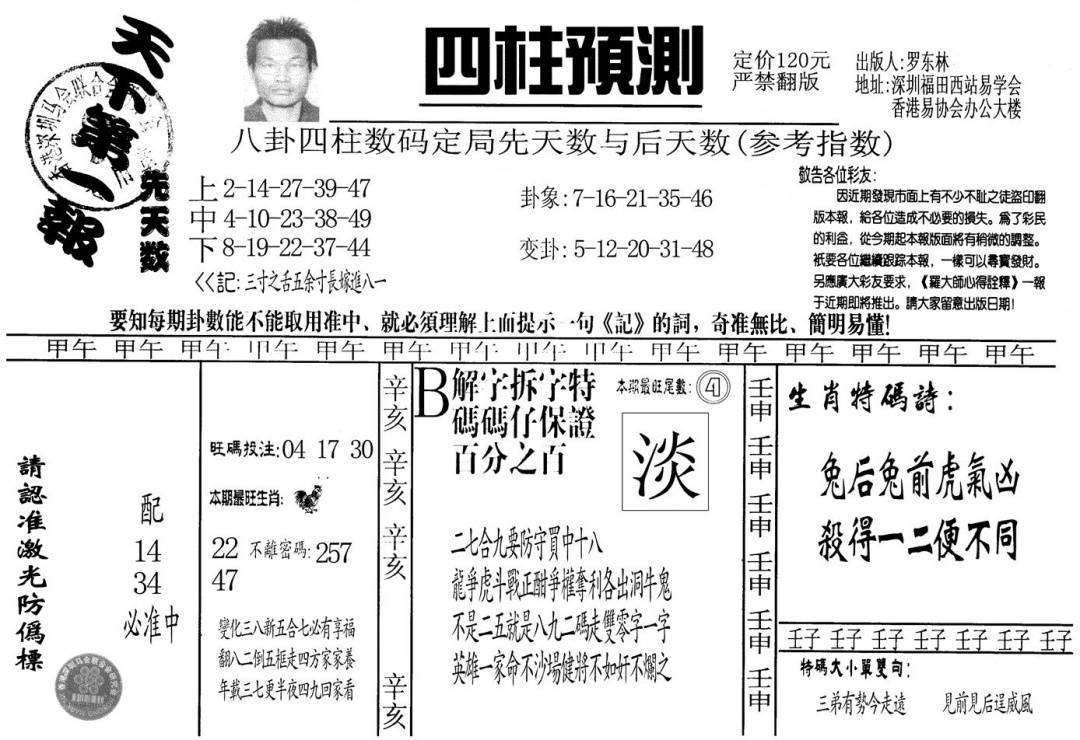 天下第一報
四柱預測
定价120元
严禁翻版
出版人:罗东林
地址:深圳福田西站易学会
香港易协会办公大楼
八卦四柱数码定局先天数与后天数(参考指数)
先天数
上2-14-27-39-47
中4-10-23-38-49
下8-19-22-37-44
<<記:三寸之舌五余寸長嫁進八一
卦象:7-16-21-35-46
变卦:5-12-20-31-48
敬告各位彩友:
因近期發現市面上有不少不耻之徒盜印翻
版本報，給各位造成不必要的損失。爲了彩民
的利益，從今期起本報版面將有稍微的調整。
衹要各位繼續跟踪本報，一樣可以尋寶發財。
另應廣大彩友要求，《羅大師心得詮釋》一報
于近期即將推出。請大家留意出版日期！
要知每期卦數能不能取用准中、就必須理解上面提示一句《記》的詞，奇准無比、簡明易懂！
甲午 甲午 甲午 甲午 甲午 甲午 甲午 甲午 甲午 甲午 甲午 甲午 甲午 甲午 甲午
請認准激光防僞標
配
14
34
必准中
旺碼投注:04 17 30
本期最旺生肖:
22 不離密碼:257
47
變化三八新五合七必有享福
翻八二倒五框走四方家家養
年載三七更半夜四九回家看
辛亥
辛亥
辛亥
辛亥
B解字拆字特
碼碼仔保證
百分之百
本期最旺尾數:
淡
二七合九要防守買中十八
龍爭虎斗戰正酣爭權奪利各出洞牛鬼
不是二五就是八九二碼走雙零字一字
英雄一家命不沙場健將不如奸不爛之
壬申
壬申
壬申
壬申
壬申
壬申
生肖特碼詩:
兔后兔前虎氣凶
殺得一二便不同
壬子 壬子 壬子 壬子 壬子 壬子 壬子
特碼大小單雙句:
三弟有勢今走遠 見前見后逞威風